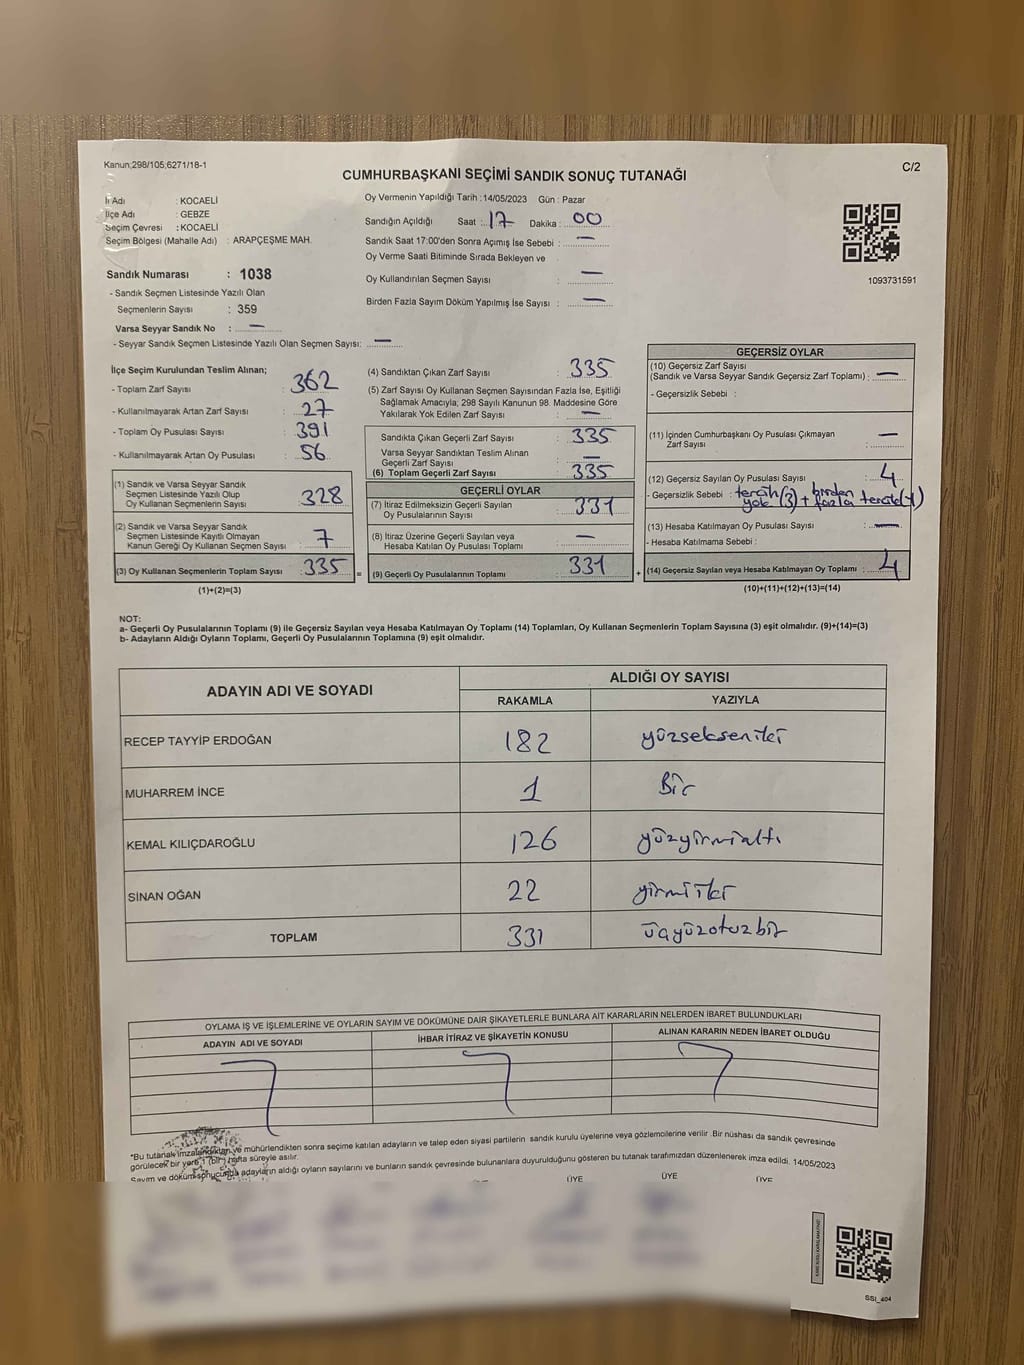 Kanun;298/105;6271/18-1
C/2
CUMHURBAŞKANI SEÇİMİ SANDIK SONUÇ TUTANAĞI
İl Adı : KOCAELİ
İlçe Adı : GEBZE
Seçim Çevresi : KOCAELİ
Seçim Bölgesi (Mahalle Adı) : ARAPÇEŞME MAH.
Sandık Numarası : 1038
- Sandık Seçmen Listesinde Yazılı Olan
Seçmenlerin Sayısı : 359
Varsa Seyyar Sandık No : —
- Seyyar Sandık Seçmen Listesinde Yazılı Olan Seçmen Sayısı: —
Oy Vermenin Yapıldığı Tarih :14/05/2023 Gün : Pazar
Sandığın Açıldığı Saat : 17 Dakika : 00
Sandık Saat 17:00'den Sonra Açımış İse Sebebi : —
Oy Verme Saati Bitiminde Sırada Bekleyen ve
Oy Kullandırılan Seçmen Sayısı : —
Birden Fazla Sayım Döküm Yapılmış İse Sayısı : —
1093731591
İlçe Seçim Kurulundan Teslim Alınan;
- Toplam Zarf Sayısı : 362
- Kullanılmayarak Artan Zarf Sayısı : 27
- Toplam Oy Pusulası Sayısı : 391
- Kullanılmayarak Artan Oy Pusulası : 56
(1) Sandık ve Varsa Seyyar Sandık
Seçmen Listesinde Yazılı Olup
Oy Kullanan Seçmenlerin Sayısı : 328
(2) Sandık ve Varsa Seyyar Sandık
Seçmen Listesinde Kayıtlı Olmayan
Kanun Gereği Oy Kullanan Seçmen Sayısı : 7
(3) Oy Kullanan Seçmenlerin Toplam Sayısı : 335
(1)+(2)=(3)
(4) Sandıktan Çıkan Zarf Sayısı : 335
(5) Zarf Sayısı Oy Kullanan Seçmen Sayısından Fazla İse, Eşitliği
Sağlamak Amacıyla; 298 Sayılı Kanunun 98. Maddesine Göre
Yakılarak Yok Edilen Zarf Sayısı : —
Sandıkta Çıkan Geçerli Zarf Sayısı : 335
Varsa Seyyar Sandıktan Teslim Alınan
Geçerli Zarf Sayısı : —
(6) Toplam Geçerli Zarf Sayısı : 335
GEÇERLİ OYLAR
(7) İtiraz Edilmeksizin Geçerli Sayılan
Oy Pusulalarının Sayısı : 331
(8) İtiraz Üzerine Geçerli Sayılan veya
Hesaba Katılan Oy Pusulası Toplamı : —
= (9) Geçerli Oy Pusulalarının Toplamı : 331
GEÇERSİZ OYLAR
(10) Geçersiz Zarf Sayısı
(Sandık ve Varsa Seyyar Sandık Geçersiz Zarf Toplamı) : —
- Geçersizlik Sebebi :
(11) İçinden Cumhurbaşkanı Oy Pusulası Çıkmayan
Zarf Sayısı : —
(12) Geçersiz Sayılan Oy Pusulası Sayısı : 4
- Geçersizlik Sebebi : tercih yok (3) + birden fazla tercih (1)
(13) Hesaba Katılmayan Oy Pusulası Sayısı : —
- Hesaba Katılmama Sebebi :
+ (14) Geçersiz Sayılan veya Hesaba Katılmayan Oy Toplamı : 4
(10)+(11)+(12)+(13)=(14)
NOT:
a- Geçerli Oy Pusulalarının Toplamı (9) ile Geçersiz Sayılan veya Hesaba Katılmayan Oy Toplamı (14) Toplamları, Oy Kullanan Seçmenlerin Toplam Sayısına (3) eşit olmalıdır. (9)+(14)=(3)
b- Adayların Aldığı Oyların Toplamı, Geçerli Oy Pusulalarının Toplamına (9) eşit olmalıdır.
ADAYIN ADI VE SOYADI
ALDIĞI OY SAYISI
RAKAMLA YAZIYLA
RECEP TAYYİP ERDOĞAN 182 yüzsekseniki
MUHARREM İNCE 1 Bir
KEMAL KILIÇDAROĞLU 126 yüzyirmialtı
SİNAN OĞAN 22 yirmiiki
TOPLAM 331 üçyüzotuzbir
OYLAMA İŞ VE İŞLEMLERİNE VE OYLARIN SAYIM VE DÖKÜMÜNE DAİR ŞİKAYETLERLE BUNLARA AİT KARARLARIN NELERDEN İBARET BULUNDUKLARI
ADAYIN ADI VE SOYADI İHBAR İTİRAZ VE ŞİKAYETİN KONUSU ALINAN KARARIN NEDEN İBARET OLDUĞU
*Bu tutanak imzalandıktan ve mühürlendikten sonra seçime katılan adayların ve talep eden siyasi partilerin sandık kurulu üyelerine veya gözlemcilerine verilir .Bir nüshası da sandık çevresinde
görülecek bir yere 1 (bir) hafta süreyle asılır.
Sayım ve döküm sonucunda adayların aldığı oyların sayılarını ve bunların sandık çevresinde bulunanlara duyurulduğunu gösteren bu tutanak tarafımızdan düzenlenerek imza edildi. 14/05/2023
ÜYE ÜYE ÜYE
SSI_404